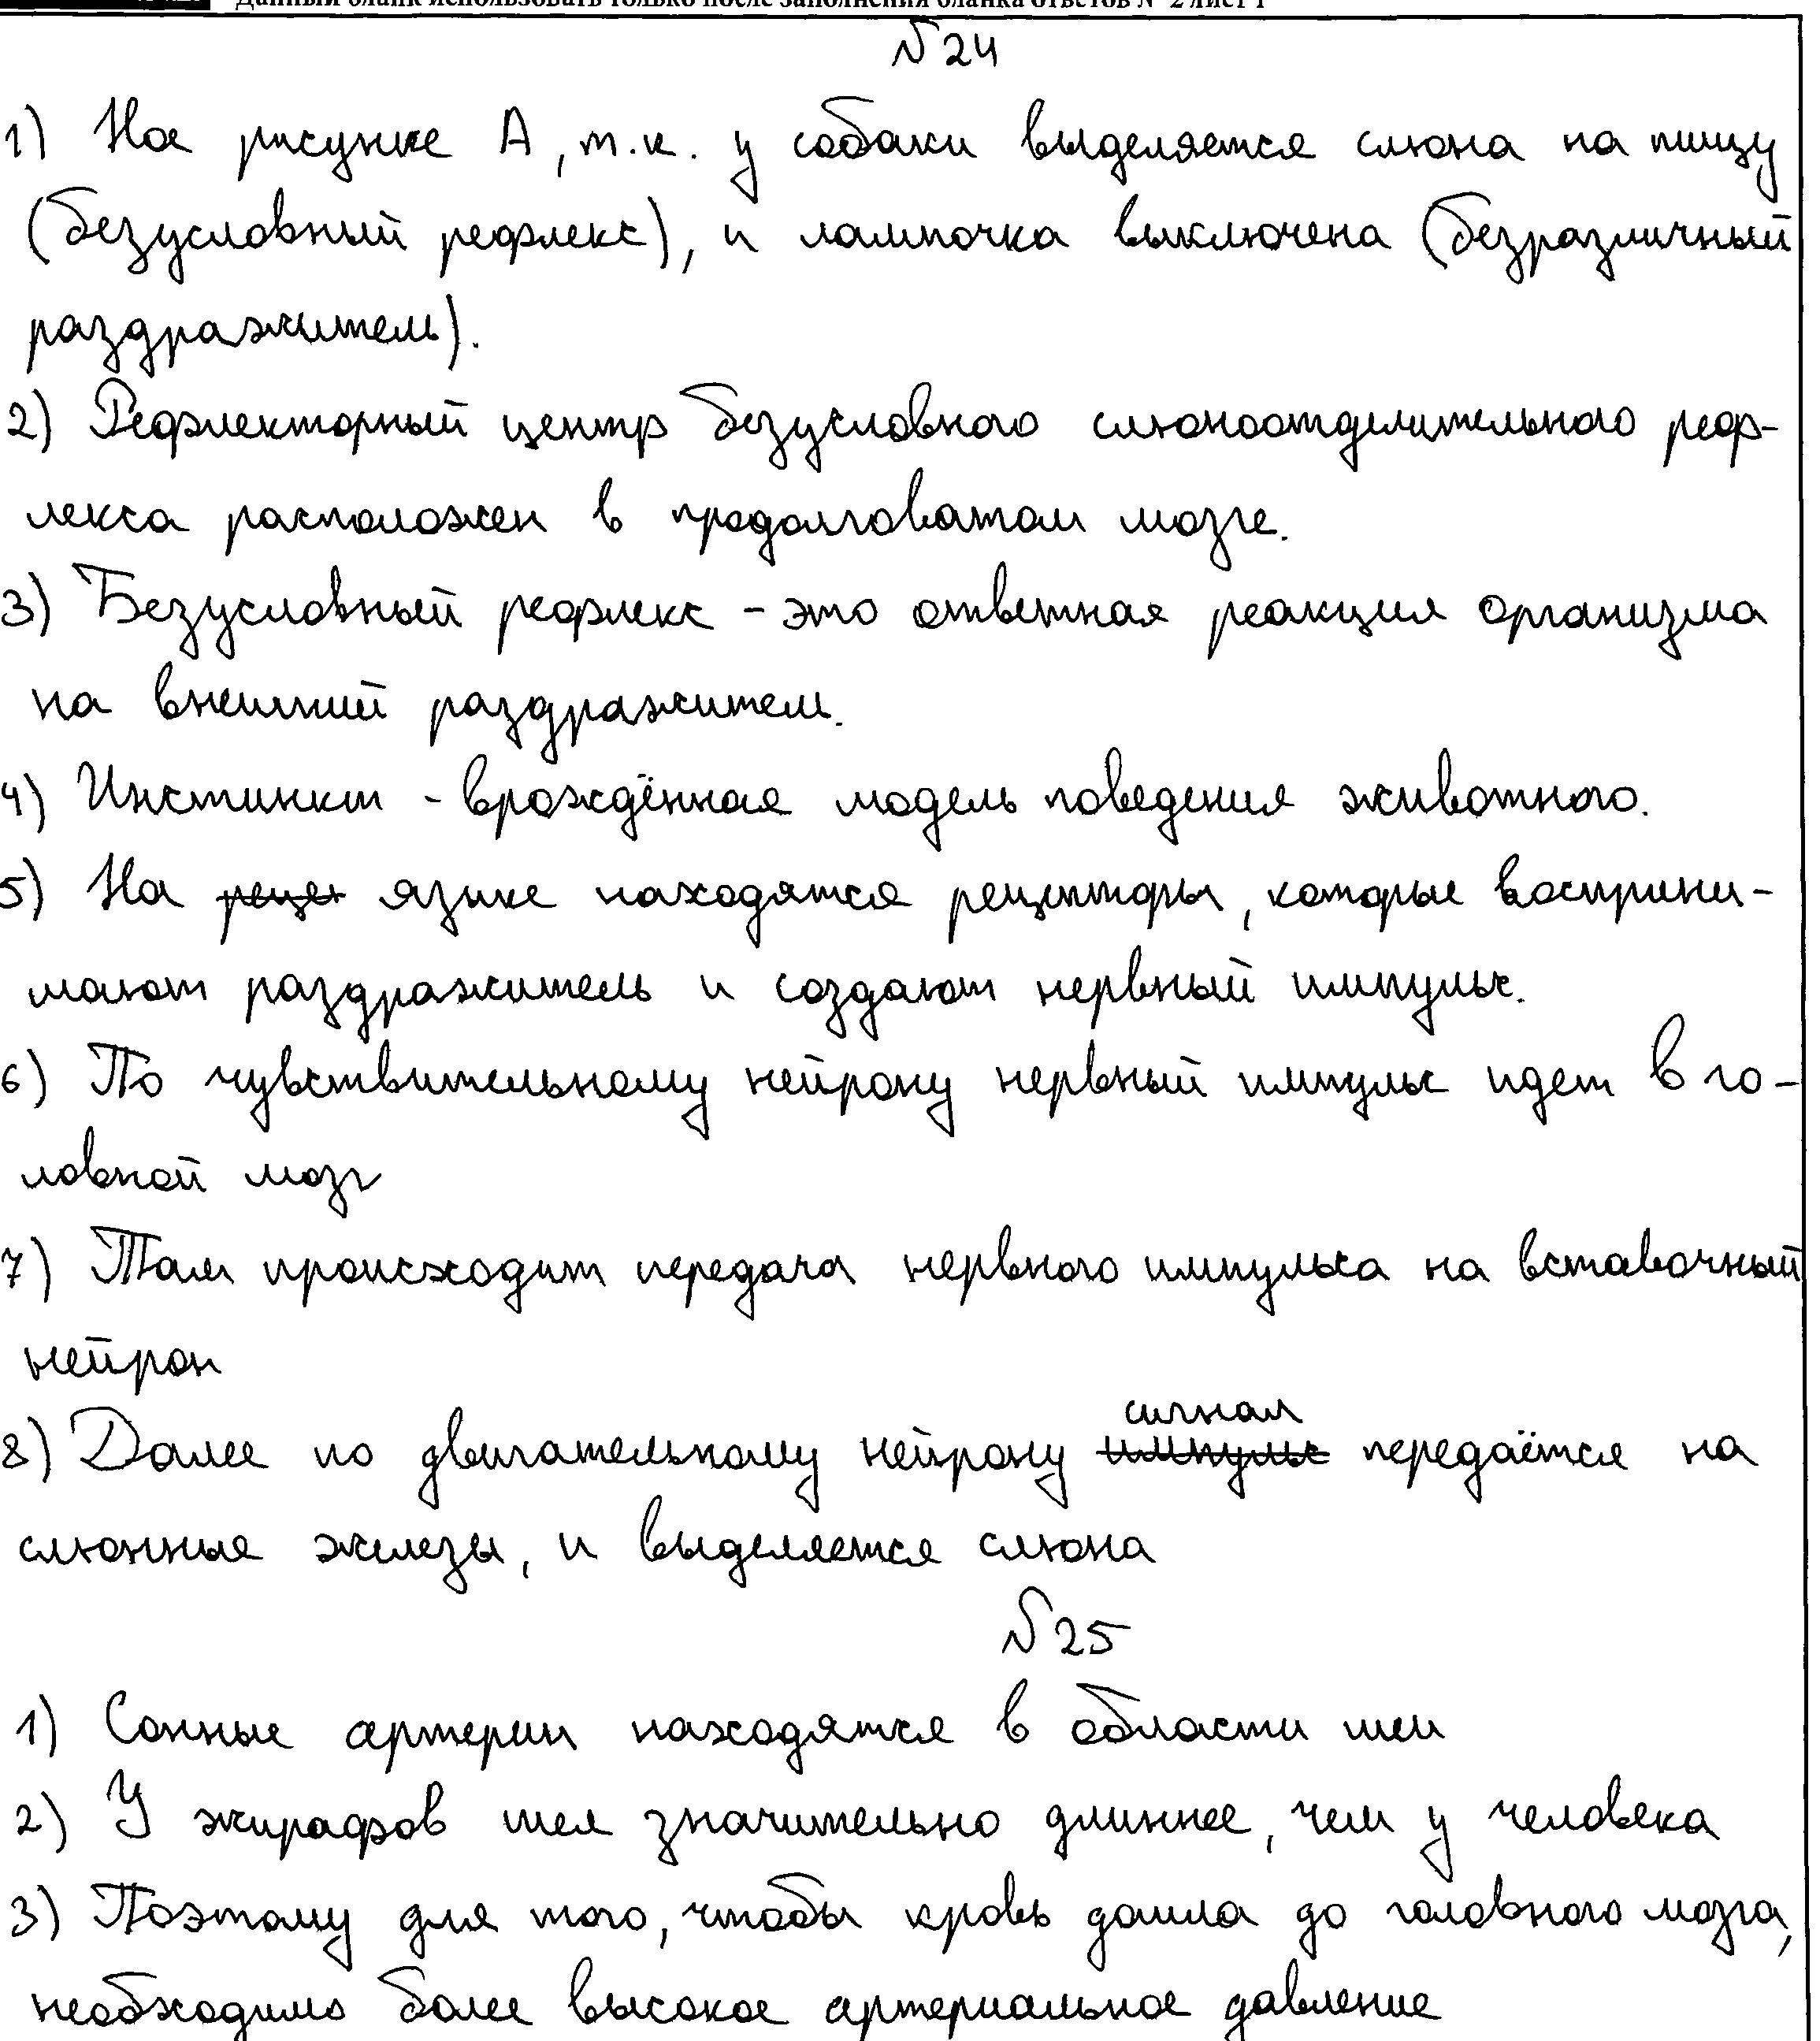 Данный бланк использовать только после заполнения бланка ответов № 2 лист 1
№ 24
1) На рисунке А, т.к. у собаки выделяется слюна на пищу
(безусловный рефлекс), и лампочка выключена (безразличный
раздражитель).
2) Рефлекторный центр безусловного слюноотделительного реф-
лекса расположен в продолговатом мозге.
3) Безусловный рефлекс - это ответная реакция организма
на внешний раздражители.
4) Инстинкт - врождённая модель поведения животного.
5) На рецеп языке находятся рецепторы, которые восприни-
мают раздражитель и создают нервный импульс.
6) По чувствительному нейрону нервный импульс идет в го-
ловной мозг
7) Там происходит передача нервного импульса на вставочный
нейрон
сигнал
8) Далее по двигательному нейрону импульс передаётся на
слюнные железы, и выделяется слюна
№ 25
1) Сонные артерии находятся в области шеи
2) У жирафов шея значительно длиннее, чем у человека
3) Поэтому для того, чтобы кровь дошла до головного мозга,
необходимо более высокое артериальное давление